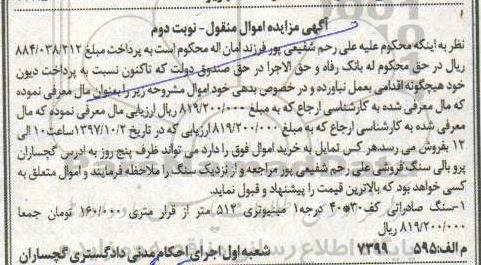 آگهی مزایده اموال منقول - نوبت دوم
نظر به اینکه محکوم علیه علی رحم شفیعی پور فرزند امان اله محکوم است به پرداخت مبلغ ۸۸۴/۰۳۸/۲۱۲
ریال در حق محکوم له بانک رفاه و حق الاجرا در حق صندوق دولت که تاکنون نسبت به پرداخت دیون
خود هیچگونه اقدامی بعمل نیاورده و در خصوص بدهی خود اموال مشروحه زیر را بعنوان مال معرفی نموده
که مال معرفی شده به کارشناسی ارجاع که به مبلغ ۸۱۹/۲۰۰/۰۰۰ ریال ارزیابی مال معرفی نموده که مال
معرفی شده به کارشناسی ارجاع که به مبلغ ۸۱۹/۲۰۰/۰۰۰ ارزیابی که در تاریخ ۱۳۹۷/۱۰/۲ ساعت ۱۰ الی
۱۲ بفروش می رسد، هر کس تمایل به خرید اموال فوق را دارد می تواند ظرف پنج روز به ادرس گچساران
پرو بالی سنگ فروشی علی رحم شفیعی پور مراجعه و از نزدیک سنگ را ملاحظه فرمایند و اموال متعلق به
کسی خواهد بود که بالاترین قیمت را پیشنهاد و قبول نماید.
۱-سنگ صادراتی کف ۳۰*۴۰ درجه۱ مینیوتری ۵۱۲ متر از قرار متری ۱۶۰/۰۰۰ تومان جمعا
۸۱۹/۲۰۰/۰۰۰ ریال
م الف: ۵۹۵ ۷۳۹۹ شعبه اول اجرای احکام مدنی دادگستری گچساران